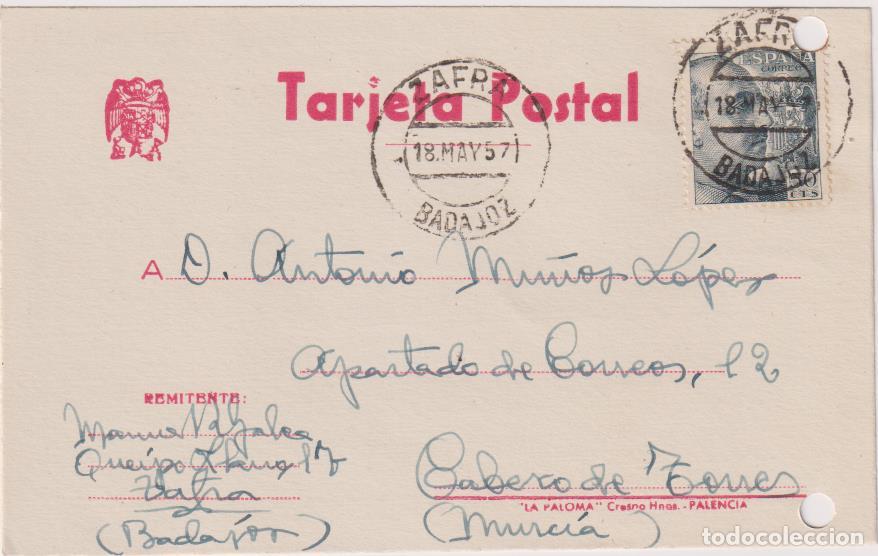 Tarjeta Postal
ZAFRA
18.MAY 57
BADAJOZ
ZAFRA
18.MAY
BADAJOZ
ESPAÑA
CORREOS
50
CTS
A D. Antonio Muñoz López
Apartado de Correos, 12
REMITENTE:
Queipo Llano, 17
Zafra
(Badajoz)
Cabezo de Torres
"LA PALOMA" Crespo Hnos. - PALENCIA
(Murcia)
todocoleccion